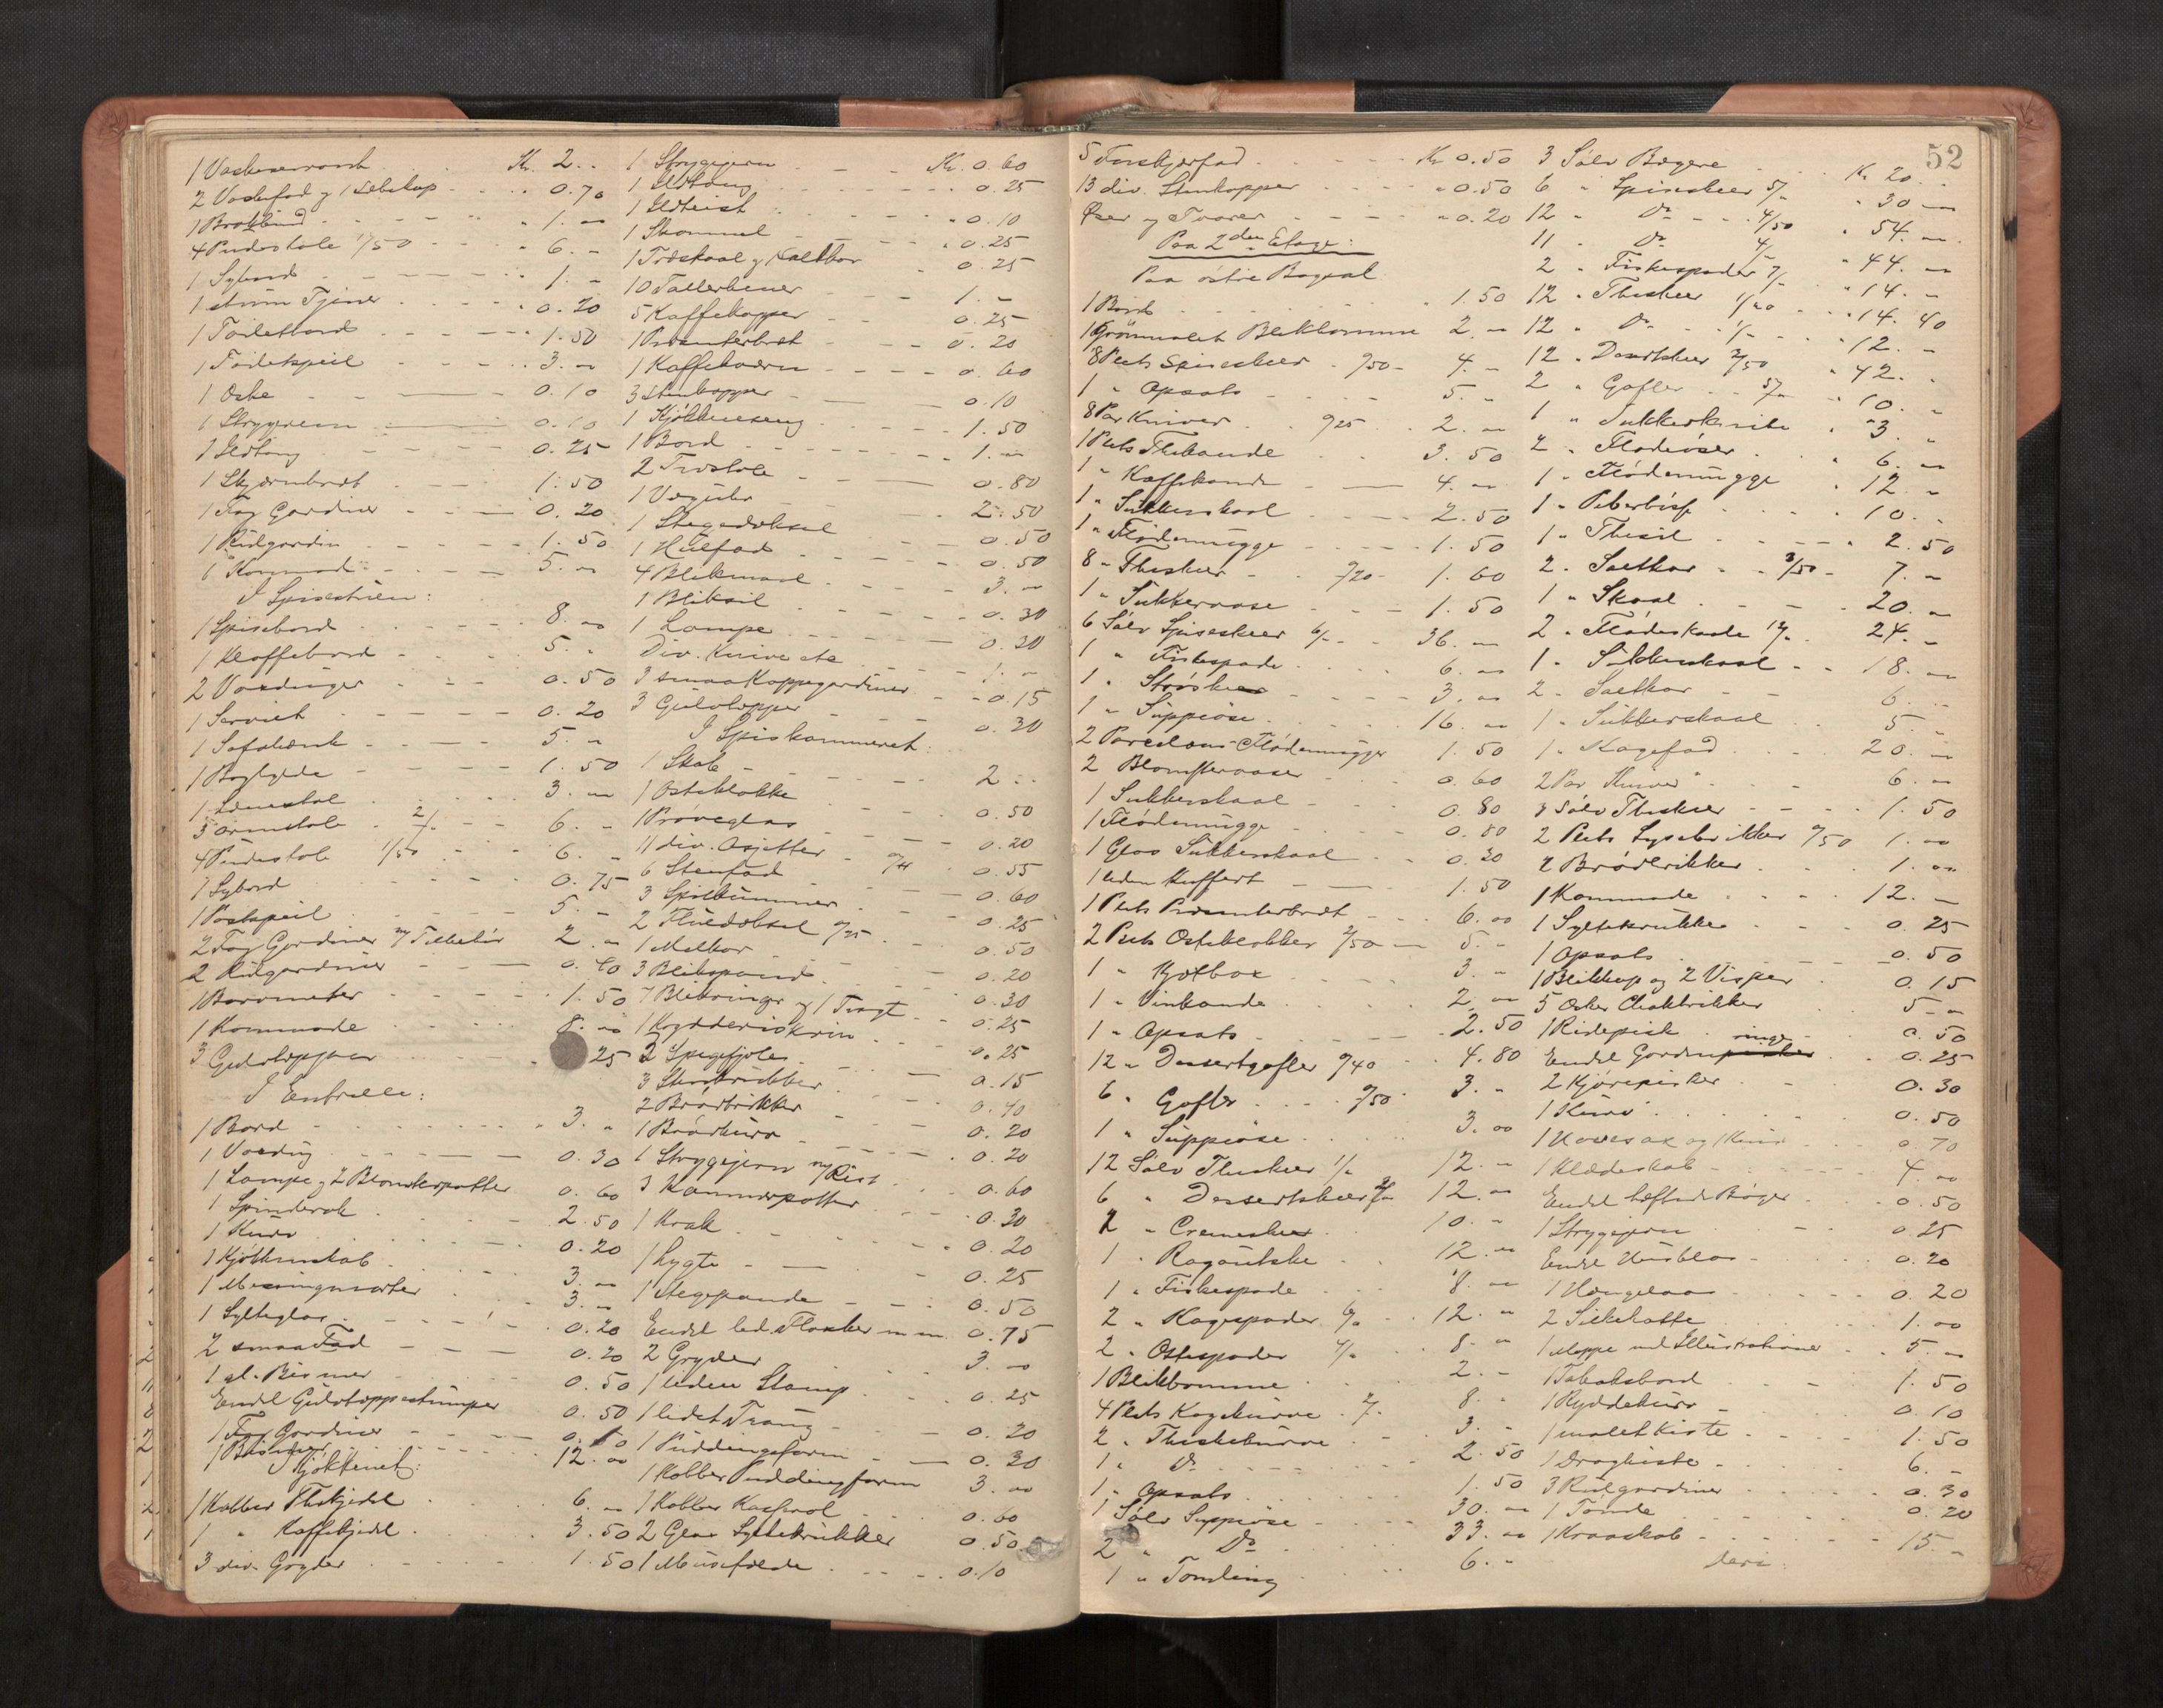 1 Vaskeservant Kr. 2. "
2 Vaskefad og 1 Sæbekop 0.70
1 Brokbind 1. "
4 Pindestole 1/50 6. "
1 Sybord 1. "
1 stum Tjener 0.20
1 Toiletbord 1.50
1 Toiletspeil 3. "
1 Æske 0.10
1 Strygejern 0.60
1 Ildtang 0.25
1 Skjærmbræt 1.50
1 Fag Gardiner 0.20
1 Rulgardin 1.50
1 Kommode 5. "
I Spisestuen:
1 Spisebord 8. "
1 Klaffebord 5. "
2 Voxduger 0.50
1 Serviet 0.20
1 Sofabænk 5. "
1 Boghylde 1.50
1 Lænestol 3. "
3 Armstole 2/" 6. "
4 Pindestole 1/50 6. "
1 Sybord 0.75
1 Vægspeil 5. "
2 Fag Gardiner m/ Tilbehør 2. "
2 Rulgardiner 0.40
1 Barometer 1.50
1 Kommode 8. "
3 Gulvtæpper 25
I Entreen:
1 Bord 3. "
1 Voxdug 0.30
1 Lampe og 2 Blomsterpotter 0.60
1 Spinderok 2.50
1 Kurv 0.20
1 Kjøkkenskab 3. "
1 Messingmorter 3. "
1 Sylteglas 0.20
2 smaa Fad 0.20
1 gl. Bismer 0.50
Endel Gulvtæppestumper 0.50
1 Fag Gardiner 0.10
1 Bismer 12. "
I Kjøkkenet:
1 Kobber Thekjedel 6. "
1 " Kaffekjedel 3.50
3 div. Gryder 1.50
1 Strygejern Kr. 0.60
1 Ildtang 0.25
1 Ildrist 0.10
1 Skammel 0.25
1 Træskaal og 1 Saltkar 0.25
10 Tallerkener 1. "
5 Kaffekopper 0.25
1 Præsenterbræt 0.20
1 Kaffekværn 0.60
3 Stenkopper 0.10
1 Kjøkkenseng 1.50
1 Bord 1. "
2 Træstole 0.80
1 Vægur 2.50
1 Stegedæksel 0.50
1 Hulfad 0.50
4 Blikmaal 3. "
1 Bliksil 0.30
1 Lampe 0.30
Div. Knive etc 1. "
3 smaa Kappegardiner 0.15
3 Gulvtæpper 0.30
I Spiskammeret:
1 Skab 2. "
1 Osteklokke 0.50
1 Prøveglas 0.20
11 div. Asjetter 0.55
6 Stenfad 0.60
3 Spilkummer 0.25
2 Fluedæksel 0/25 0.50
1 Melkar 0.20
3 Blikspand 0.30
7 Blikringe og 1 Tragt 0.25
1 Krydderiskrin 0.25
2 Spegefjøler 0.15
3 Stenkrukker 0.40
2 Brødbrikker 0.20
1 Brødkurv 0.20
1 Strygejern m/ Rist 0.60
3 Kammerpotter 0.30
1 Krak 0.20
1 Lygte 0.25
1 Stegepande 0.50
Endel led. Flasker m m 0.75
2 Gryder 3. "
1 liden Stamp 0.25
1 lidet Traug 0.20
1 Puddingsform 0.30
1 Kobber Puddingform 3. "
1 Kobber Kasserol 0.60
2 Glas Syltekrukker 0.50
1 Musefælde 0.10
52
5 Forskjærfad Kr 0.50
13 div. Stenkopper " 0.50
Øser og Tvarer " 0.20
Paa 2den Etage:
Paa østre Bogsal
1 Bord 1.50
1 Grønmalet Blikkomme 2. "
8 Plets Spiseskeer 0/50 4. "
1 " Opsats 5. "
8 Par Kniver 0/25 2. "
1 Plets Thekande 3.50
1 " Kaffekande 4. "
1 " Sukkerskaal 2.50
1 " Flødemugge 1.50
8 " Theskeer 0/20 1.60
1 " Sukkervase 1.50
6 Sølv Spiseskeer 6/" 36. "
1 " Fiskespade 6. "
1 " Strøskee 3. "
1 " Suppeøse 16. "
2 Porcelæns Flødemugger 1.50
2 Blomstervaser 0.60
1 Sukkerskaal 0.80
1 Flødemugge 0.80
1 Glas Sukkerskaal 0.30
1 liden Kuffert 1.50
1 Plets Præsenterbræt 6. "
2 Plets Osteklokker 2/50 5. "
1 " Kjøtbox 3. "
1 " Vinkande 2. "
1 " Opsats 2.50
12 " Dessertgafler 0/40 4.80
6 " Gafler 0/50 3. "
1 " Suppeøse 3. "
12 Sølv Theskeer 1/" 12. "
6 " Dessertskeer 2/" 12. "
2 " Cremeskeer 10. "
1 " Ragoutske 12. "
1 " Fiskespade 8. "
2 " Kagespader 6/" 12. "
2 " Ostespader 4/" 8. "
1 Blikkomme 2. "
4 Plets Kagekurve 2/" 8. "
2 " Theskekurve 3. "
1 " Do 2.50
1 " Opsats 1.50
1 Sølv Suppeøse 30. "
2 " Do 33. "
1 " Tomling 6. "
3 Sølv Bægere Kr 20. "
6 " Spiseskeer 5/" " 30. "
12 " Do 4/50 " 54. "
11 " Do 4/" " 44. "
2 " Fiskespader 7/" " 14. "
12 " Theskeer 1/20 " 14.40
12 " Do 1/" " 12. "
12 " Desertskeer 3/50 " 42. "
2 " Gafler 5/" " 10. "
1 " Sukkerknibe " 3. "
2 " Flødeøser " 6. "
1 " Flødemugge " 12. "
1 " Peberbøsse 10. "
1 " Thesil 2.50
2 " Saltkar 3/50 7. "
1 " Skaal 20. "
2 " Flødeskaale 12/" 24. "
1 " Sukkerskaal 18. "
2 " Saltkar 6. "
1 " Sukkerskaal 5. "
1 " Kagefad 20. "
2 Par Knive 6. "
3 Sølv Theskeer 1.50
2 Plets Lysebrikker 0/50 1. "
2 Brødbrikker 1. "
1 Kommode 12. "
1 Syltekrukke 0.25
1 Opsats 0.50
1 Blikkop og 2 Visper 0.15
5 Æsker Chakbrikker 5. "
1 Ridepisk 0.50
Endel Gardinringe 0.25
2 Kjørepisker 0.30
1 Kurv 0.50
1 Havesax og 1 Kniv 0.70
1 Klædeskab 4. "
Endel hæftede Bøger 0.50
1 Strygejern 0.25
Endel Husblas 0.20
1 Hængelaas 0.20
2 Silkehatte 1. "
1 Mappe med Illustrationer 5. "
1 Tobaksbord 1.50
1 Ryddekurv 0.10
1 malet Kiste 1.50
1 Dragkiste 6. "
3 Rulgardiner 0.30
1 Tønde 0.20
1 Kraaskab 15. "
deri